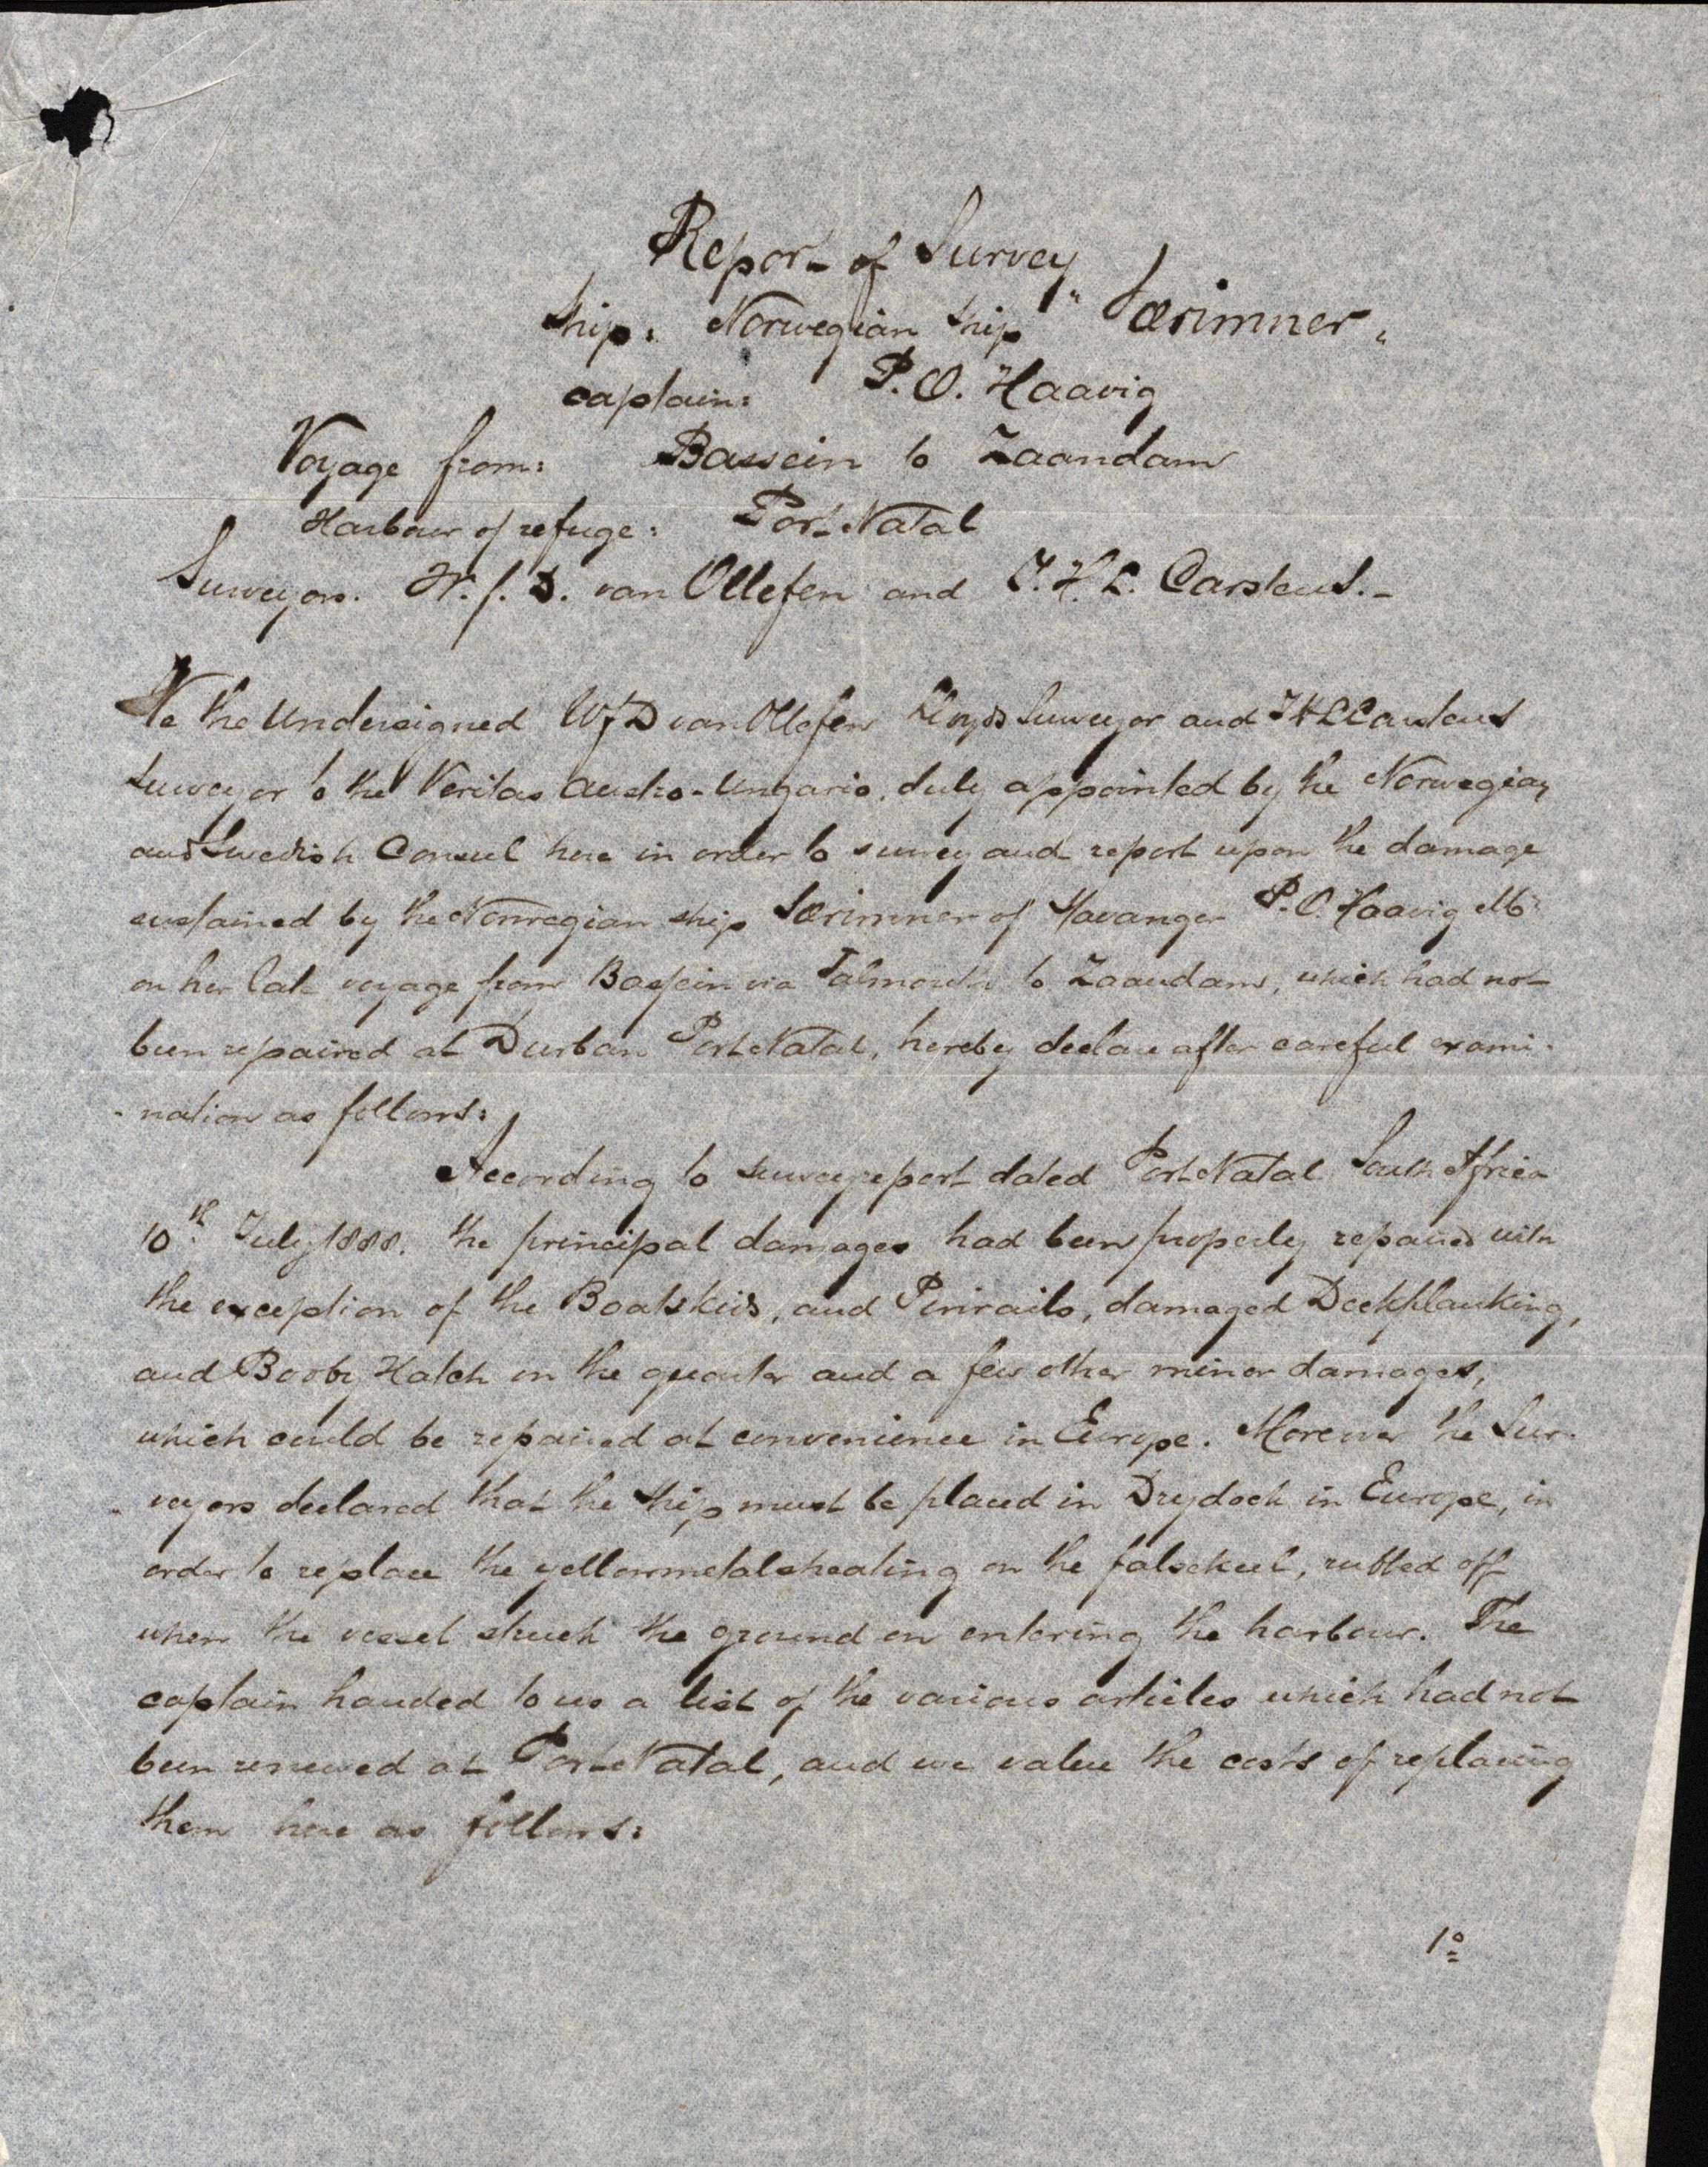 Report of Survey
Ship: Norwegian Ship "Særimner"
captain: P. O. Haavig
Voyage from: Bassein to Zaandam
Harbour of refuge: Port Natal
Surveyors. W. J. D. van Ollefen and J. H. L. Carstens.-
We the Undersigned WJD van Ollefen Lloyds Surveyor and JHL Carstens
Surveyor to the Veritas Austro-Ungario, duly appointed by the Norwegian
and Swedish Consul here in order to survey and report upon the damage
sustained by the Norwegian ship Særimner of Stavanger P. O. Haavig Mr
on her late voyage from Bassein via Falmouth to Zaandam, which had not
been repaired at Durban Port Natal, hereby declare after careful exami-
-nation as follows:
According to surveyreport dated Port Natal South Africa
10th July 1888. the principal damages had been properly repaired with
the exception of the Boatskids, and Pinrails, damaged Deckplanking,
and Booby Hatch on the quarter and a few other minor damages,
which could be repaired at convenience in Europe. Morever the Sur-
-veyors declared that the ship must be placed in Drydock in Europe, in
order to replace the yellowmetalsheating on the falsekeel, rubbed off
when the vessel struck the ground on entering the harbour. The
captain handed to us a list of the various articles which had not
been renewed at Port Natal, and we value the costs of replacing
them here as follows:
1º